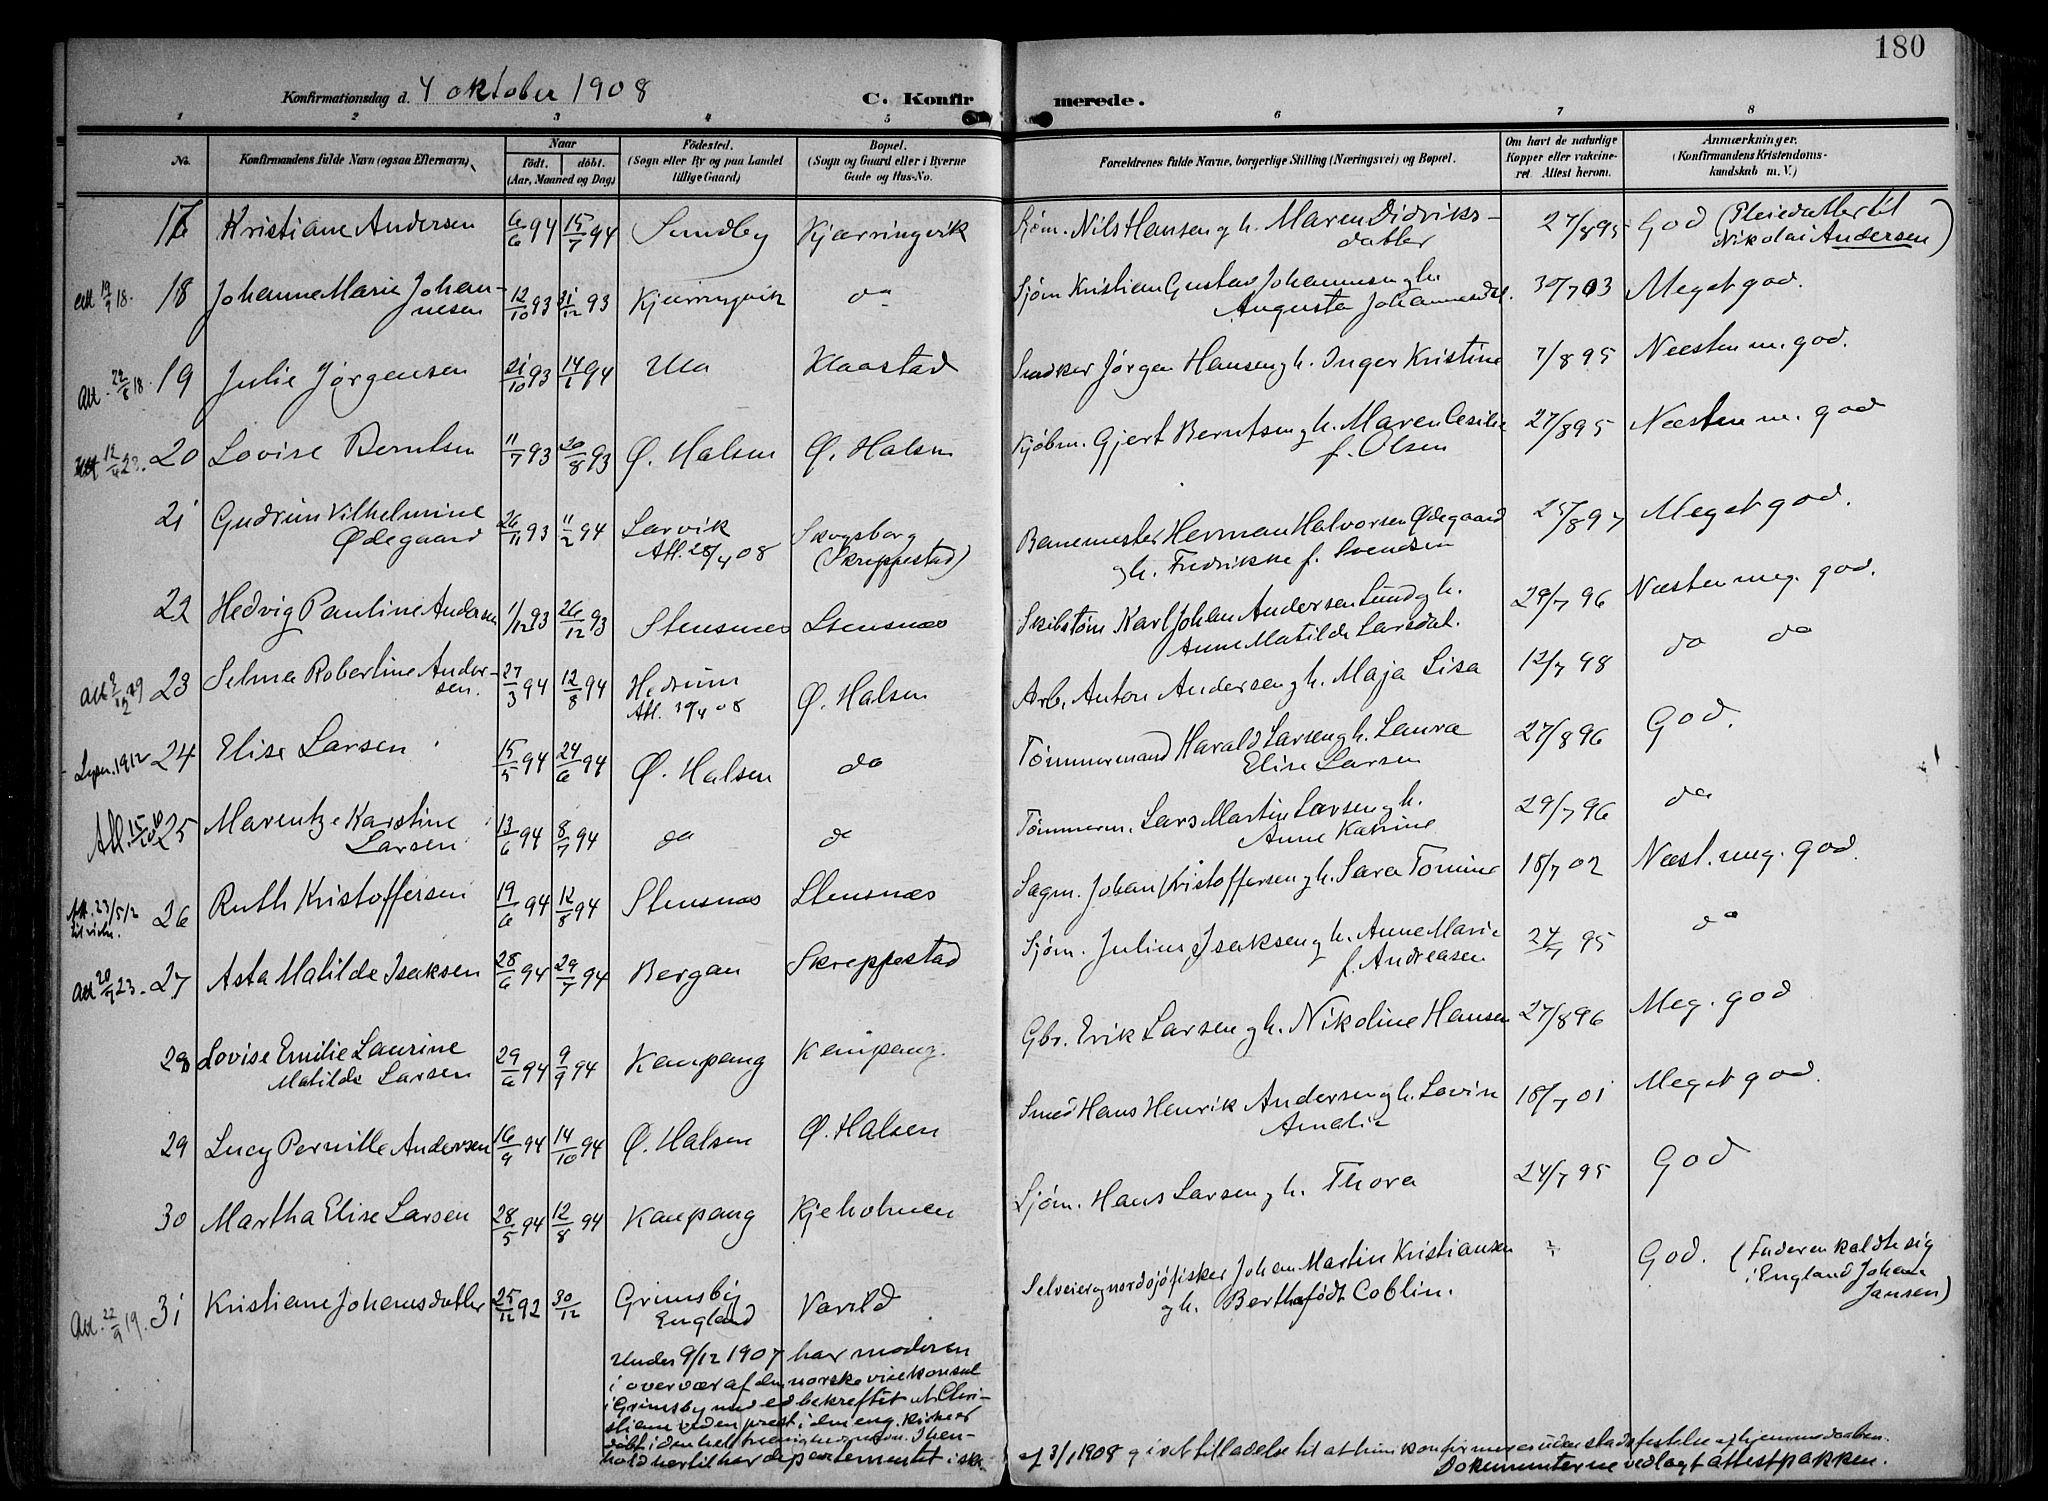 180
Konfirmationsdag d. 4 oktober 1908
C. Konfirmerede.
1 2 3 4 5 6 7 8
No. Konfirmandens fulde Navn (ogsaa Efternavn). Naar født. døbt. (Aar, Maaned og Dag) Fødested. (Sogn eller By og paa Landet tillige Gaard) Bopæl. (Sogn og Gaard eller i Byerne Gade og Hus-No. Forældrenes fulde Navne, borgerlige Stilling (Næringsvei) og Bopæl. Om havt de naturlige Kopper eller vakcineret. Attest herom. Anmærkninger. (Konfirmandens Kristendomskundskab m. V.)
17 Kristiane Andersen 6/6 94 15/7 94 Sundby Kjærringvik Sjøm. Nils Hansen og h. Maren Didriks-
datter 27/8 95 God (Pleiedatter til
Nikolai Andersen)
Att 19/9 18. 18 Johanne Marie Johan-
nesen 12/10 93 31/12 93 Kjærringvik do Sjøm Kristian Gustav Johannesen og h.
Augusta Johannesdat. 30/7 03 Meget god.
Att. 22/8 18. 19 Julie Jørgensen 21/10 93 14/1 94 Ula Klaastad Snedker Jørgen Hansen og h. Inger Kristine 7/8 95 Næsten m. god.
20 Lovise Berntsen 11/7 93 20/8 93 Ø. Halsen Ø. Halsen Kjøbm. Gjert Berntsen og h. Maren Cesilie
f. Olsen 27/8 95 Næsten m. god
21 Gudrun Vilhelmine
Ødegaard 26/11 93 11/2 94 Larvik
Att. 28/4 08 Skogsborg
(Skreppestad) Banemester Herman Halvorsen Ødegaard
og h. Fredrikke f. Svendsen 25/8 97 Meget god.
22 Hedvig Pauline Andersen 1/12 93 26/12 93 Stensnes Stensnæs Skibstøm Karl Johan Andersen Lund og h.
Anne Matilde Larsdat. 29/7 96 Næsten meg. god.
23 Selma Robertine Ander-
sen. 27/3 94 12/8 94 Hedrum
Att. 29/4 08 Ø. Halsen Arb. Anton Andersen og h. Maja Lisa 12/7 98 do do
Lysn. 1912 24 Elise Larsen 15/5 94 24/6 94 Ø. Halsen do Tømmermand Harald Larsen og h. Laura
Elise Larsen 27/8 96 God.
25 Marentze Karstine
Larsen 13/6 94 8/7 94 do do Tømmerm. Lars Martin Larsen og h.
Anne Katrine 29/7 96 do
Att. 23/5 12 26 Ruth Kristoffersen 19/6 94 12/8 94 Stensnæs Stensnæs Sagm. Johan Kristoffersen og h. Sara Tomine 18/7 02 Næst. meg. god.
Att 20/7 23. 27 Asta Matilde Isaksen 28/6 94 29/7 94 Bergan Skreppestad Sjøm. Julius Isaksen og h. Anne Marie
f. Andreasen 24/7 95 do
28 Lovise Emilie Laurine
Matilde Larsen 29/6 94 9/9 94 Kaupang Kaupang. Gbr. Erik Larsen og h. Nikoline Hansen 27/8 96 Meg. god
29 Lucy Pernille Andersen 16/9 94 14/10 94 Ø. Halsen Ø. Halsen Smed Hans Henrik Andersen og h. Lovise
Amalie 18/7 01 Meget god.
30 Martha Elise Larsen 28/5 94 12/8 94 Kaupang Kjeholmen Sjøm. Hans Larsen og h. Thora 24/7 95 God
Att. 22/9 19. 31 Kristiane Johansdatter 25/12 92 30/12 Grimsby
England Varild Selveier og nordsjøfisker Johan Martin Kristiansen
og h. Bertha født Coblin. God. (Faderen kaldte sig
i England Johan
Jansen)
Under 9/12 1907 har moderen
i overvær af den norske visekonsul
i Grimsby med ed bekreftet at Chri-
stiane ved en prest i den eng. kirke er
døbt i den hel. treenigheds navn. I hen-
hold hertil har departementet i skr.
af 3/1 1908 givet tilladelse til at hun konfirmeres uden stadfestelse af hjemmedaaben.
Dokumenterne vedlagt attestpakken.